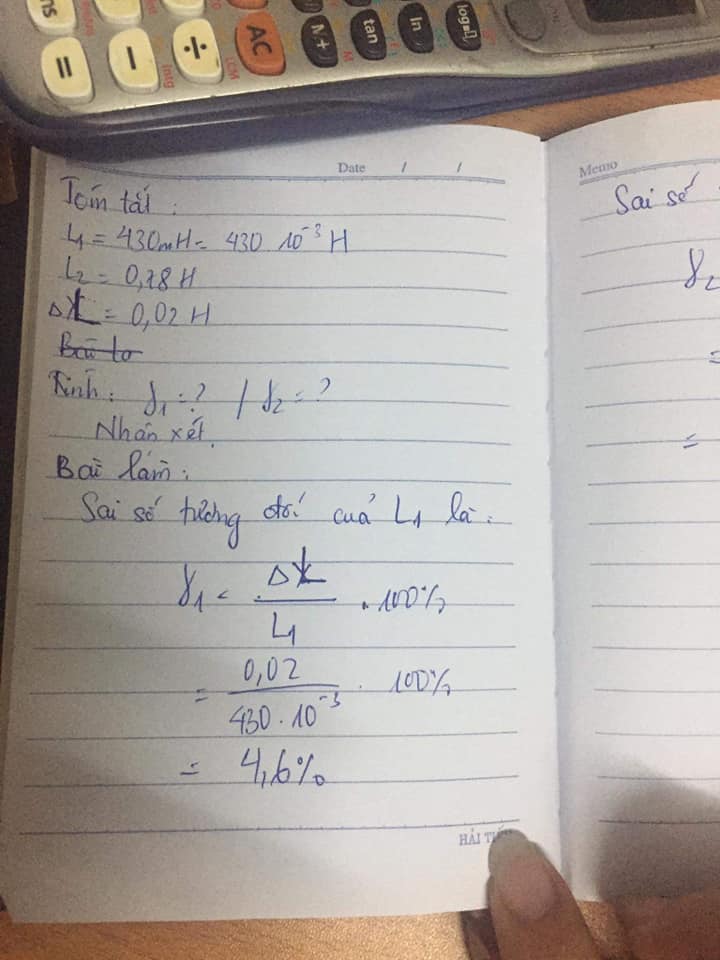 =
−
÷
AC
N+
tan
ln
log
Date / /
Tóm tắt:
L1 = 430mH = 430 10⁻³ H
L2 = 0,78 H
ΔL = 0,02 H
Tính: γ1 = ? / γ2 = ?
Nhận xét.
Bài làm:
Sai số tương đối của L1 là:
γ1 = ΔL / L1 . 100%
= 0,02 / 430 . 10⁻³ . 100%
= 4,6%
Memo
Sai số
γ2
=
=
HẢI